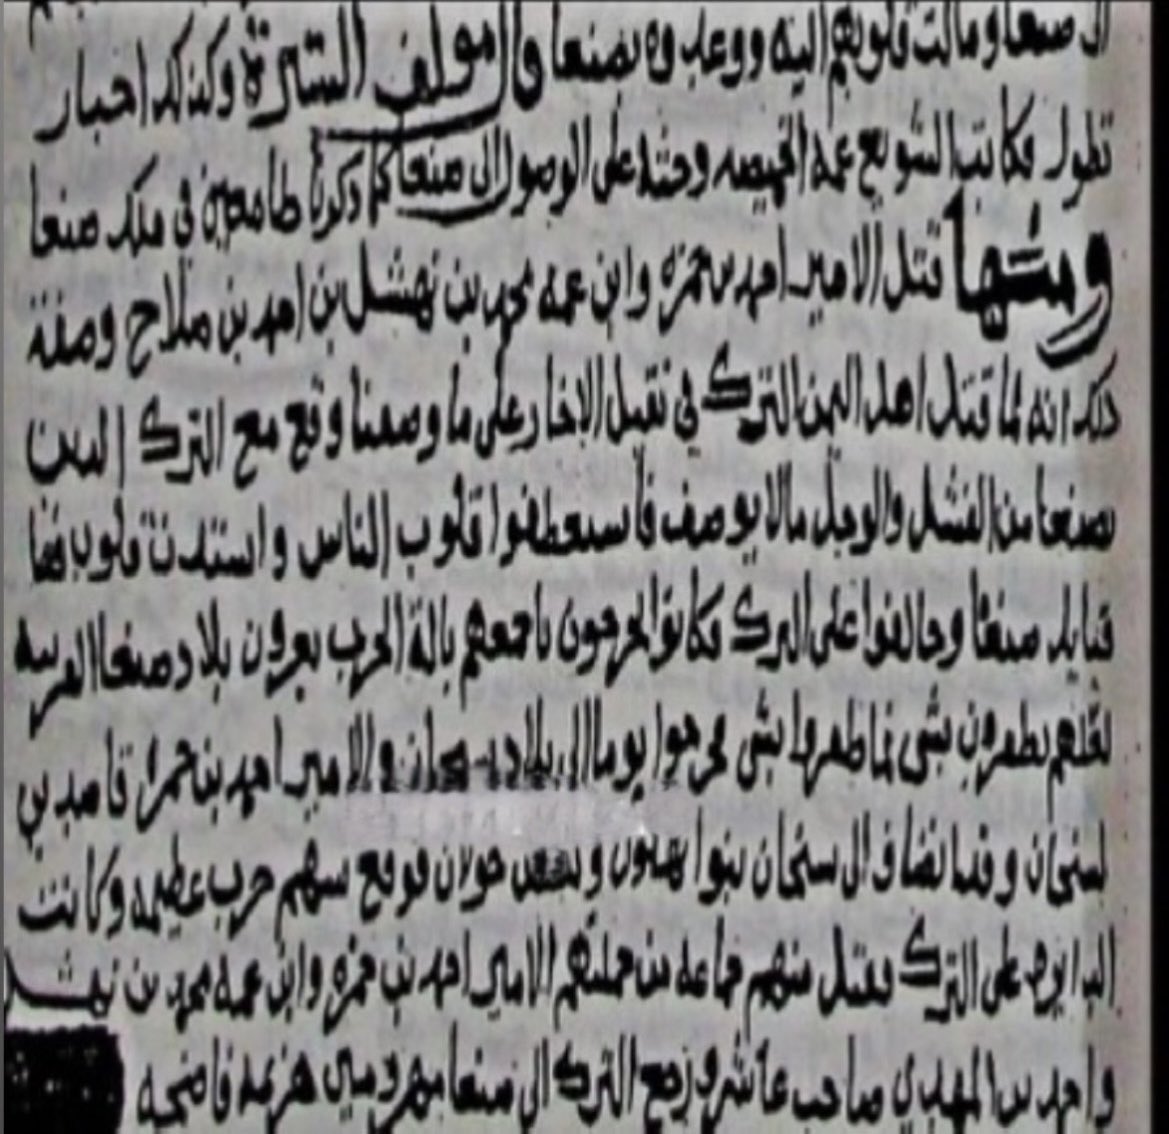 الى صنعا ومالت قلوبهم اليه ووعدوه بصنعا قال مولف السيرة وكذلك اخبار
تطول فكاتب الشويع عمه القهيصه وحثه على الوصول الى صنعا كما ذكرنا طامعين في ملك صنعا
ومنها قتل الامير احمد بن حمزه وابن عمه محمد بن نهشل بن احمد بن صلاح وصفة
ذلك انه لما قتل اهل اليمن الترك في تقيل الاخبار على ما وصفنا وقع مع الترك الذين
بصنعا من الفشل والوجل مالا يوصف فاستعطفوا قلوب الناس واستدنت قلوب
قبايل صنعا وحالفوا على الترك فكانوا يخرجون باجمعهم بالة الحرب يغزون بلاد صنعا القريبه
لعلهم يظفرون بشي فما ظفروا بشي فخرجوا يوما الى بلاد سنحان والامير احمد بن حمزه قاصدين
لسنحان وقد انضاف الى سنحان بنوا بهلول وبعض خولان فوقع بينهم حرب عظيمه وكانت
الدايره على الترك فقتل منهم جماعه من جملتهم الامير احمد بن حمزه وابن عمه محمد بن نهشل
واحمد بن المهدي صاحب عاشر ورجع الترك الى صنعا مهزومين هزيمه فاضحه